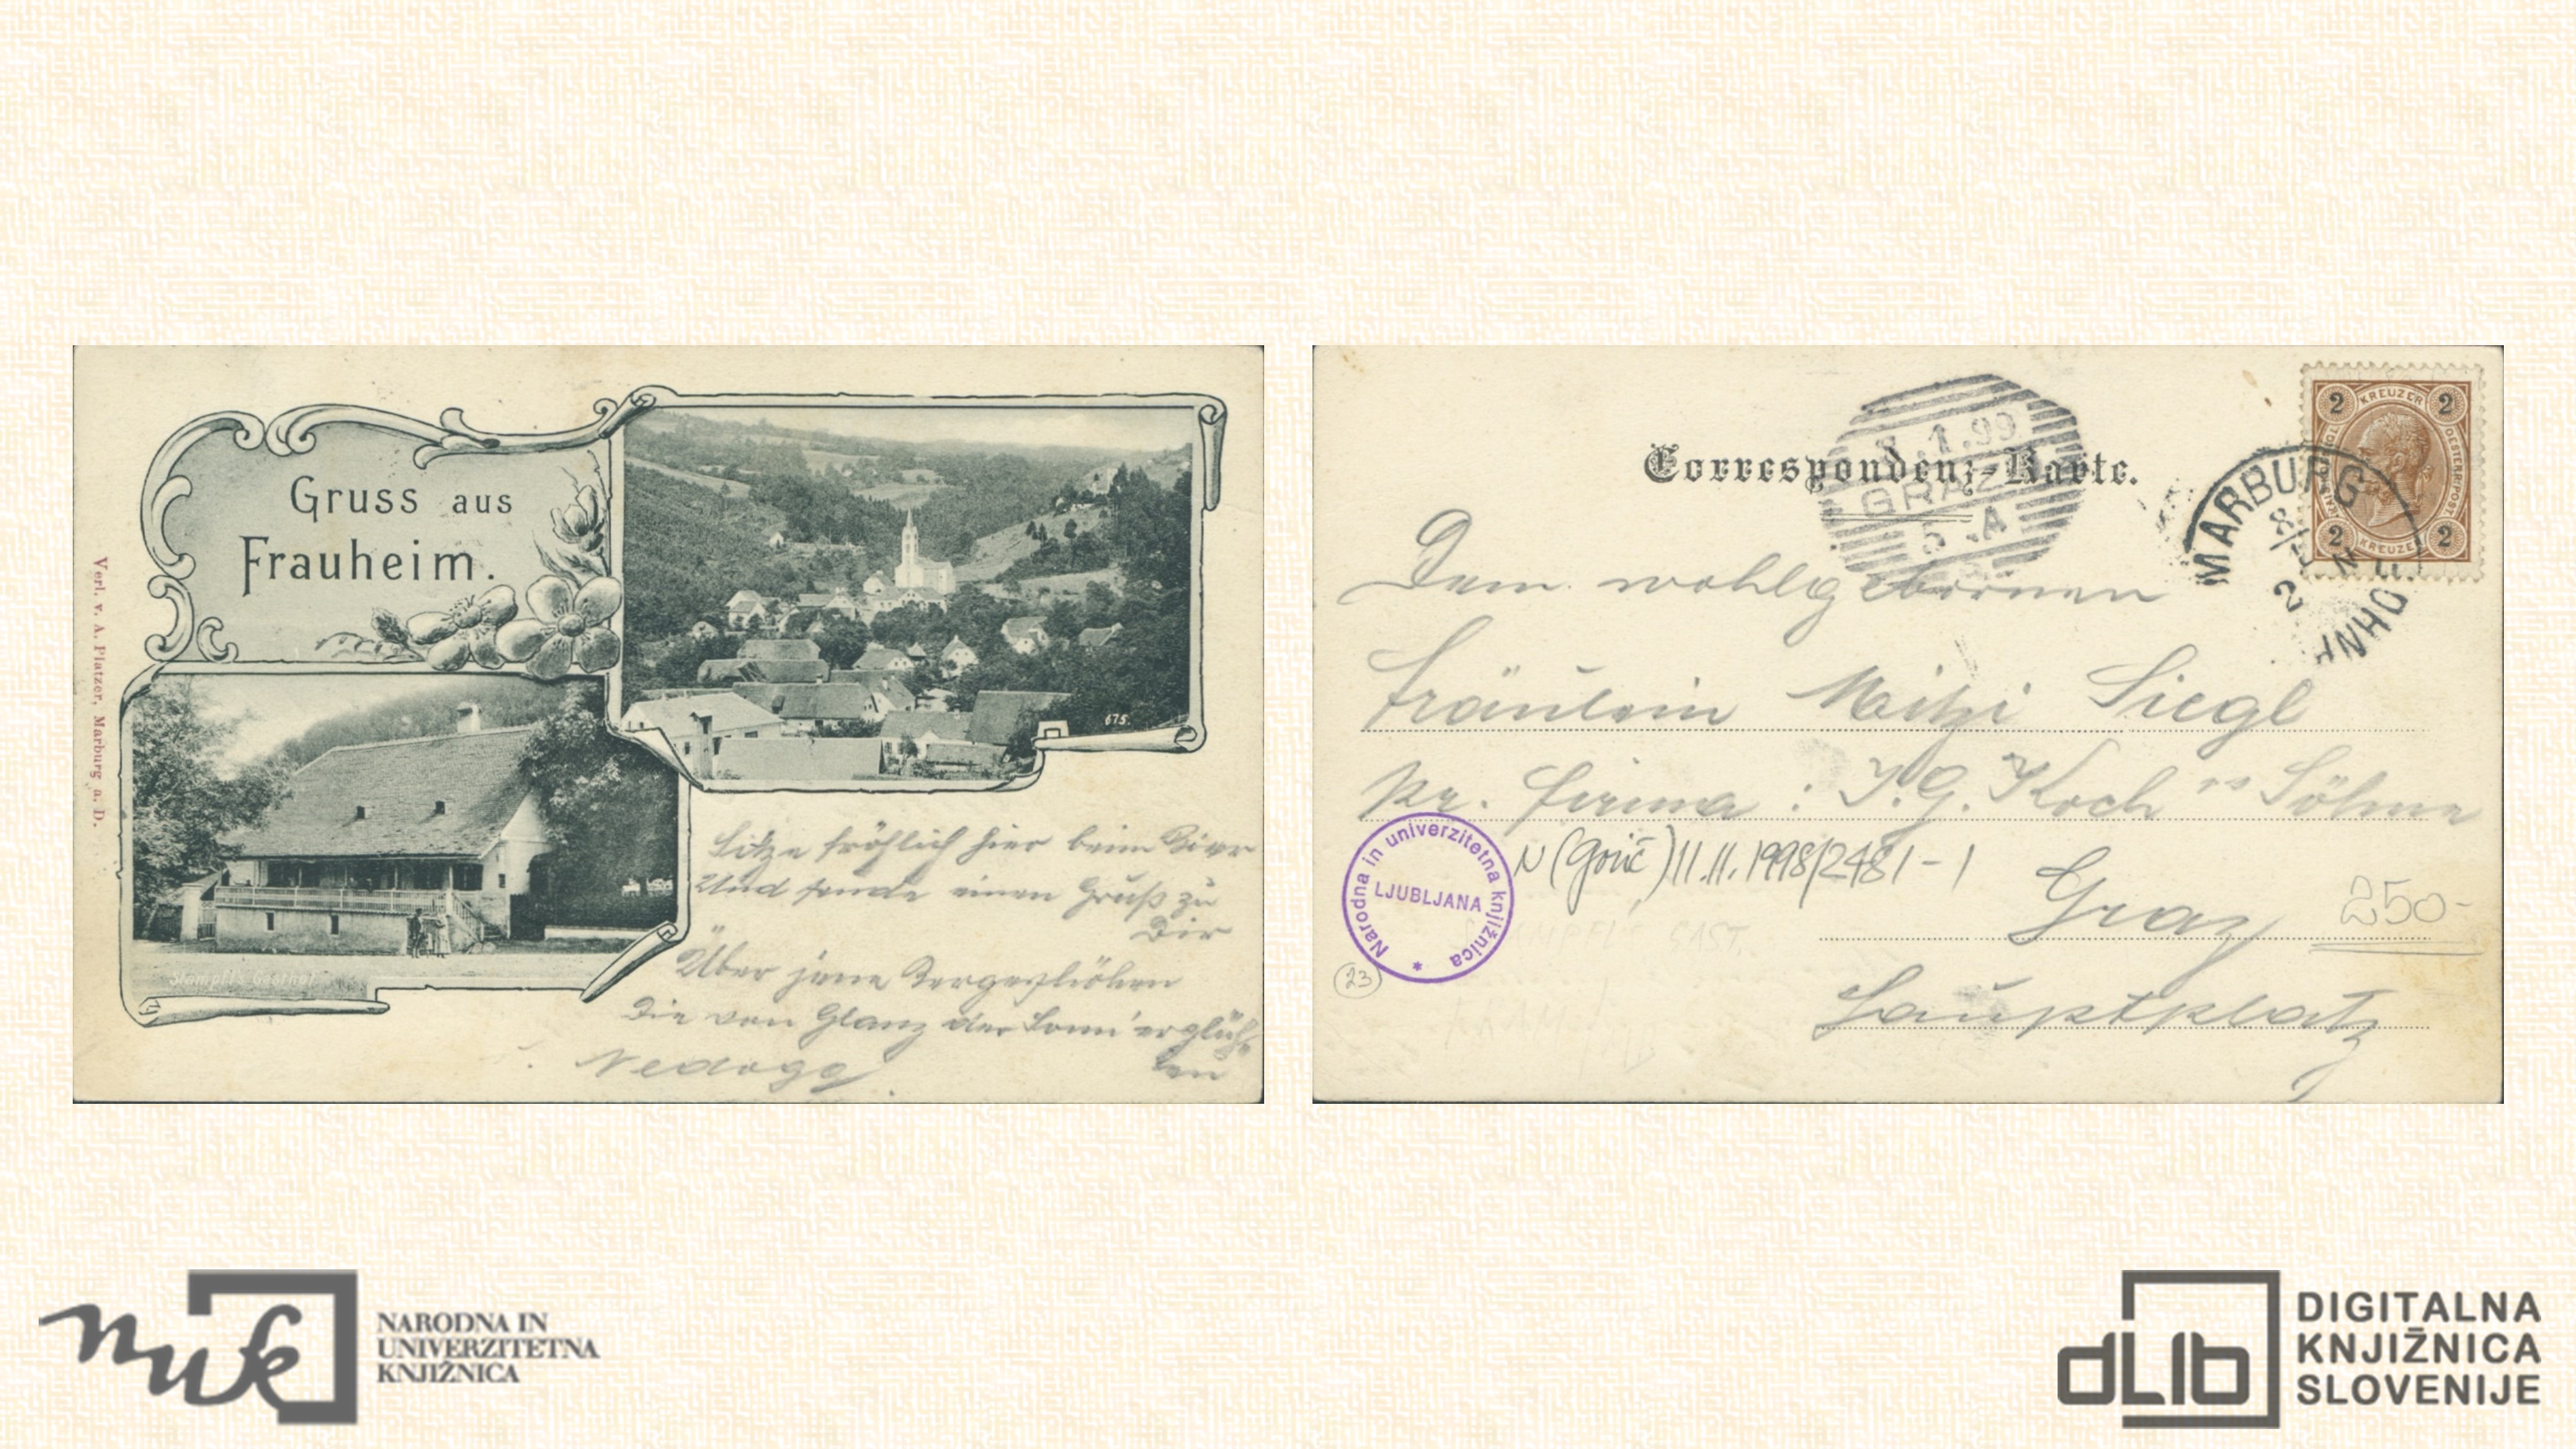 Gruss aus
Frauheim.
675.
Verl. v. A. Platzer, Marburg a. D.
Sitze fröhlich hier beim Bier
Und sende einen Gruß zu
Dir
Über jene Bergeshöhen
Die von Glanz der Sonn' erglüh-
en
Nedogg
Correspondenz-Karte.
1.99
GRAZ
5.A
MARBURG
2 KREUZER 2
2 KREUZER 2
Dem wohlgebornen
Fräulein Mitzi Siegl
pr. Firma: J. G. Koch's Söhne
N (Gorič) 11.11.1998/2481-1
Narodna in univerzitetna knjižnica
LJUBLJANA
Graz
250-
23
Hauptplatz
nuk
NARODNA IN
UNIVERZITETNA
KNJIŽNICA
dLib
DIGITALNA
KNJIŽNICA
SLOVENIJE